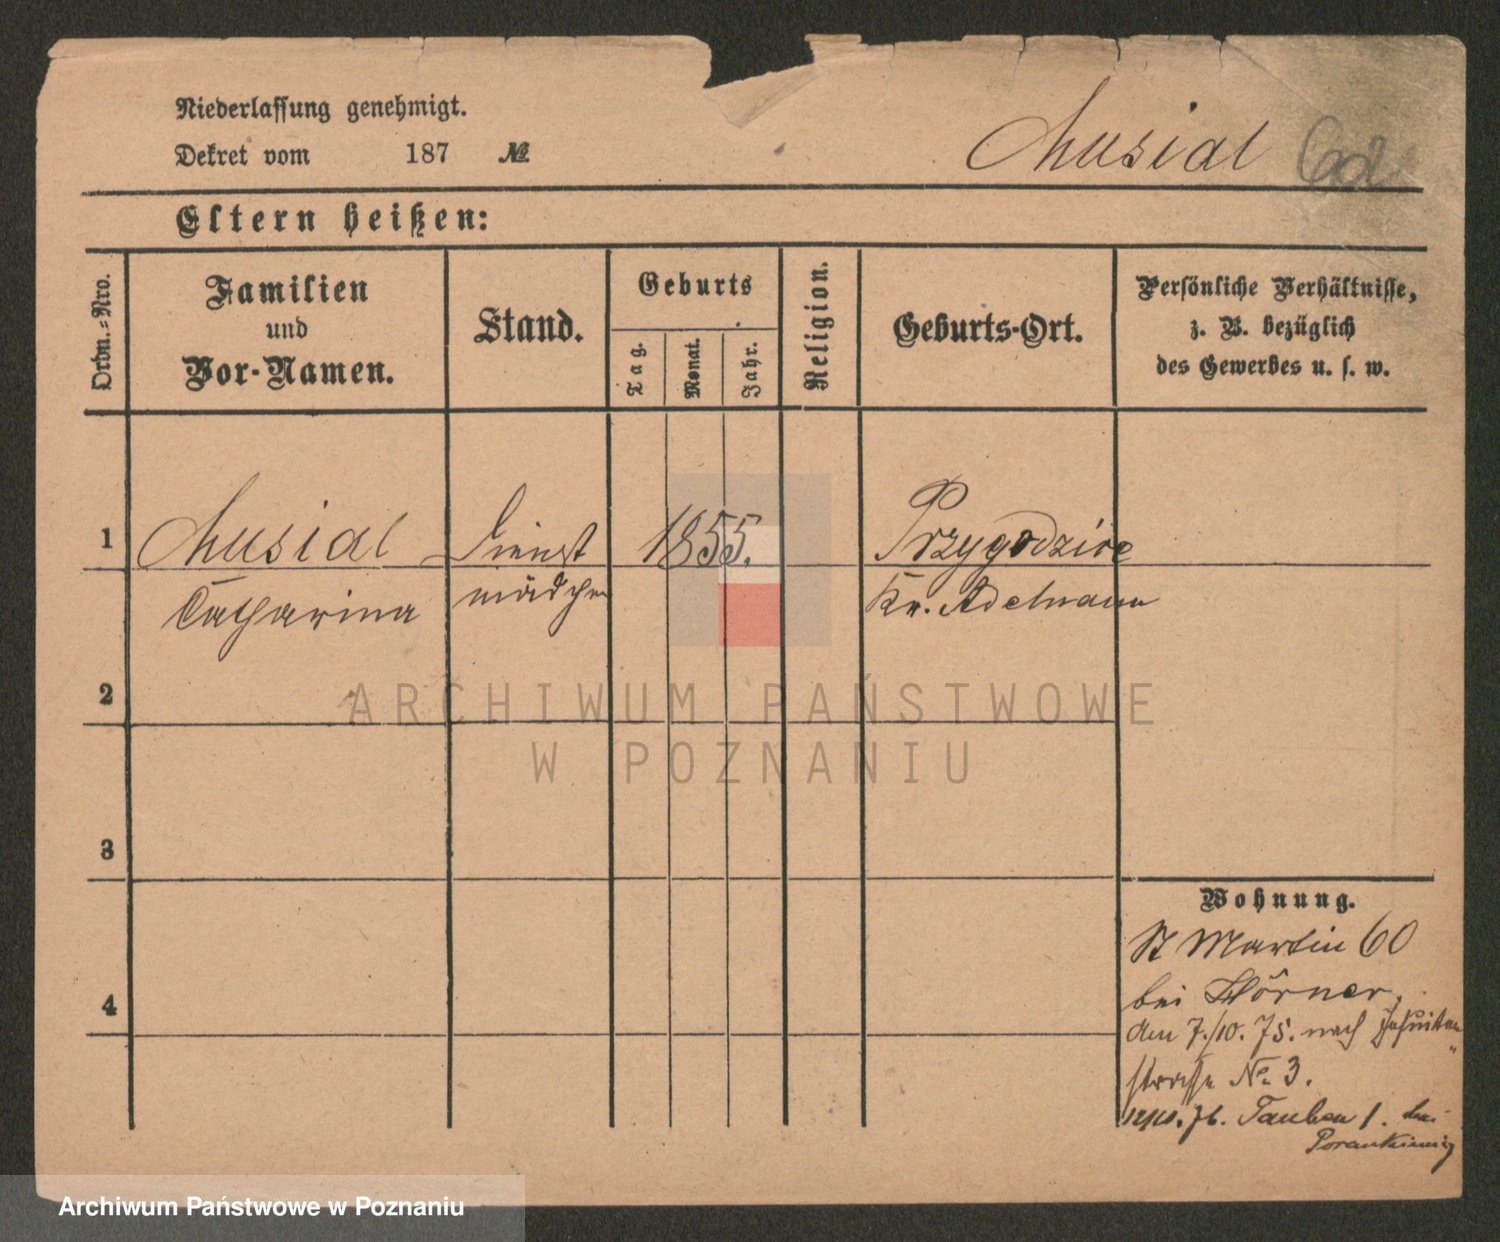 Niederlassung genehmigt.
Dekret vom 187 №
Musial
Eltern heißen:
Ordn.=Nro.
Familien
und
Vor-Namen.
Stand.
Geburts
Tag.
Monat.
Jahr.
Religion.
Geburts-Ort.
Persönliche Verhältnisse,
z. B. bezüglich
des Gewerbes u. s. w.
1
Musial
Catharina
Dienst
mädchen
1855.
Przygodzice
Kr. Adelnau
2
3
4
Wohnung.
St Martin 60
bei Hörner,
den 7./10. 75. nach Jesuiten
straße No 3.
76. Tauben 1. bei
ARCHIWUM PAŃSTWOWE
W POZNANIU
Archiwum Państwowe w Poznaniu